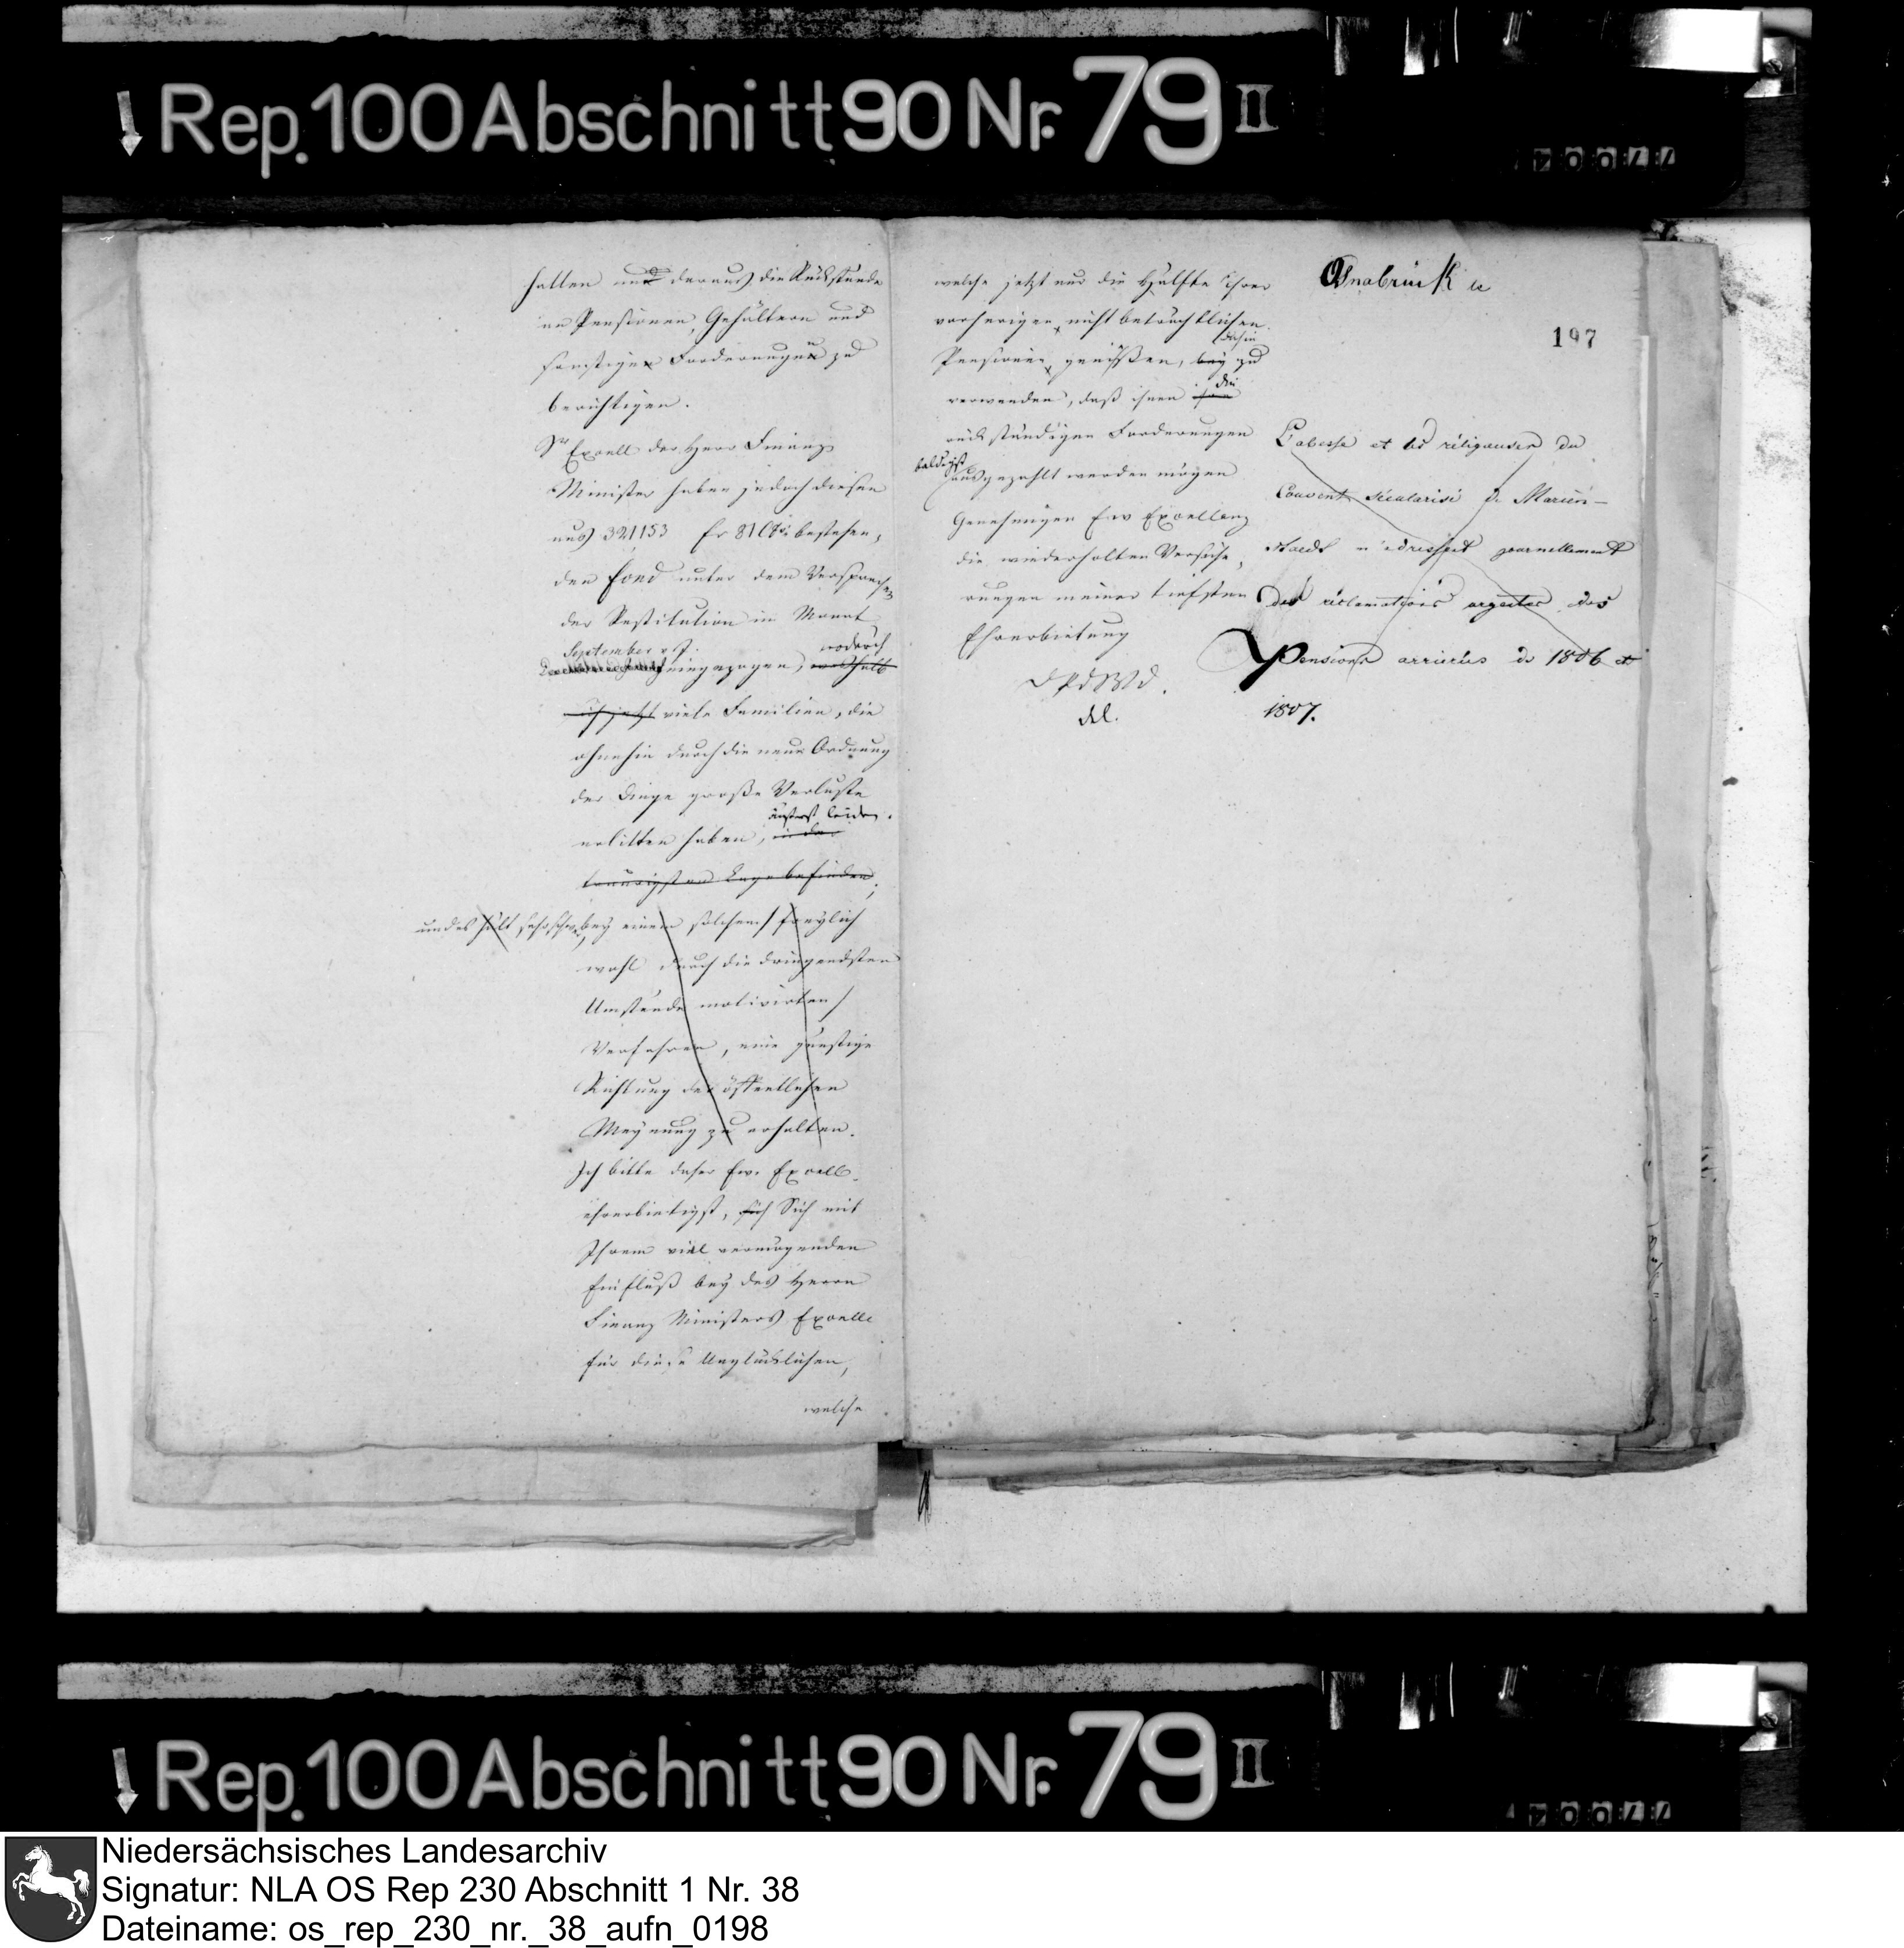 Rep. 100 Abschnitt 90 Nr. 79 II
halten und daraus die Rückstände
an Pensionen, Gehältern und
sonstigen Forderungen zu
berichtigen.
Sr Excell der Herr Finanz
Minister haben jedoch diesen
aus 321153 Fr 81 Cts bestehen,
den Fond unter dem Versprechen
der Restitution im Monat
September v. J. wodurch
eingezogen, weshalb
viele Familien, die
ohnehin durch die neue Ordnung
der Dinge große Verluste
äußerst leiden.
erlitten haben, in der
traurigsten Lage befinden;
und es hält sehr schwer, bey einem solchen / freylich
wohl durch die dringendsten
Umstände motivirten /
Verfahren, eine günstige
Richtung der öffentlichen
Meynung zu erhalten.
Ich bitte daher Ew. Excell.
ehrerbietigst, sich Sich mit
Ihrem viel vermögenden
Einfluß bey des Herrn
Finanz Ministers Excelle
für diese Unglücklichen,
welche
welche jetzt nur die Hälfte ihrer
vorherigen nicht beträchtlichen
dahin
Pensionen genießen, bey zu
die
verwenden, daß ihnen ihre
rückständigen Forderungen
baldigst
ausgezahlt werden mögen
Genehmigen Ew Excellenz
die wiederholten Versiche,
rungen meiner tiefsten
Ehrerbietung
Osnabrück
197
L'abesse et les réligeuses du
Couvent sécularisé de Marien-
staedt m'adressent journellement
des réclamations urgentes des
Pensions arriérées de 1806 et
1807.
Rep. 100 Abschnitt 90 Nr. 79 II
Niedersächsisches Landesarchiv
Signatur: NLA OS Rep 230 Abschnitt 1 Nr. 38
Dateiname: os_rep_230_nr._38_aufn_0198